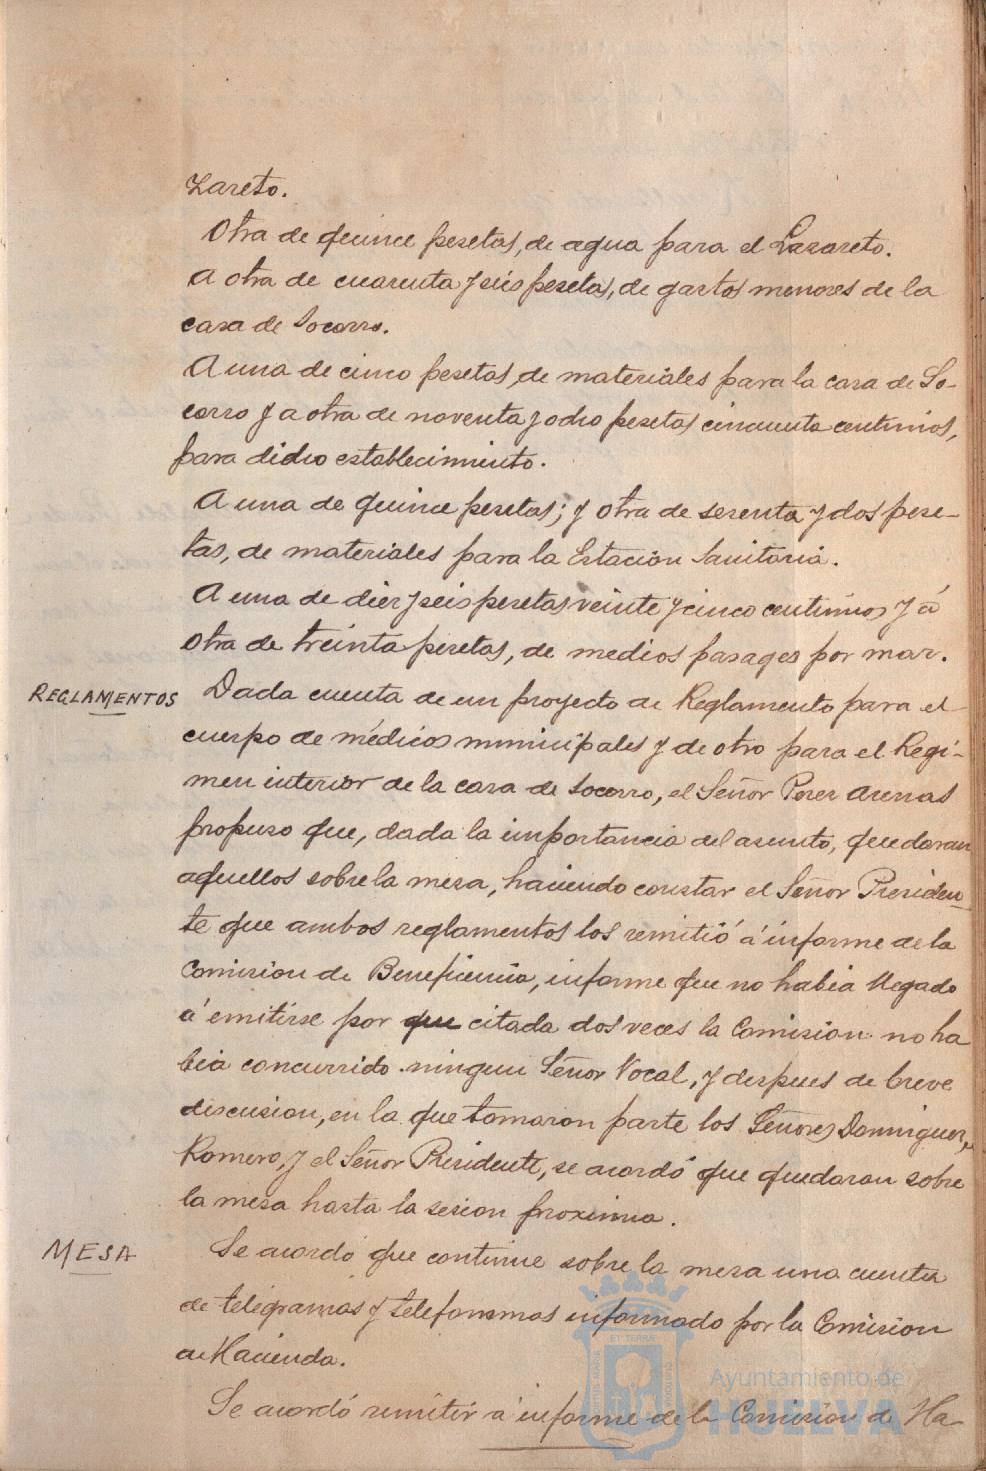 zareto.
Otra de quince pesetas, de agua para el Lazareto.
A otra de cuarenta y seis pesetas, de gastos menores de la
casa de Socorro.
A una de cinco pesetas de materiales para la casa de So-
corro y a otra de noventa y ocho pesetas cincuenta centimos,
para dicho establecimiento.
A una de quince pesetas; y otra de sesenta y dos pese-
tas, de materiales para la Estación Sanitaria.
A una de diez y seis pesetas veinte y cinco centimos y á
otra de treinta pesetas, de medios pasages por mar.
REGLAMENTOS
Dada cuenta de un proyecto de Reglamento para el
cuerpo de médicos municipales y de otro para el Regi-
men interior de la casa de Socorro, el Señor Perez Arenas
propuso que, dada la importancia del asunto, quedaran
aquellos sobre la mesa, haciendo constar el Señor Presiden-
te que ambos reglamentos los remitió á informe de la
Comision de Beneficencia, informe que no habia llegado
á emitirse por que citada dos veces la Comision no ha
bia concurrido ningun Señor Vocal, y despues de breve
discusion, en la que tomaron parte los Señores Dominguez,
Romero, y el Señor Presidente, se acordó que quedaran sobre
la mesa hasta la sesion proxima.
MESA
Se acordó que continue sobre la mesa una cuenta
de telegramas y telefonemas informado por la Comision
de Hacienda.
Se acordó remitir á informe de la Comision de Ha-
Ayuntamiento de
HUELVA